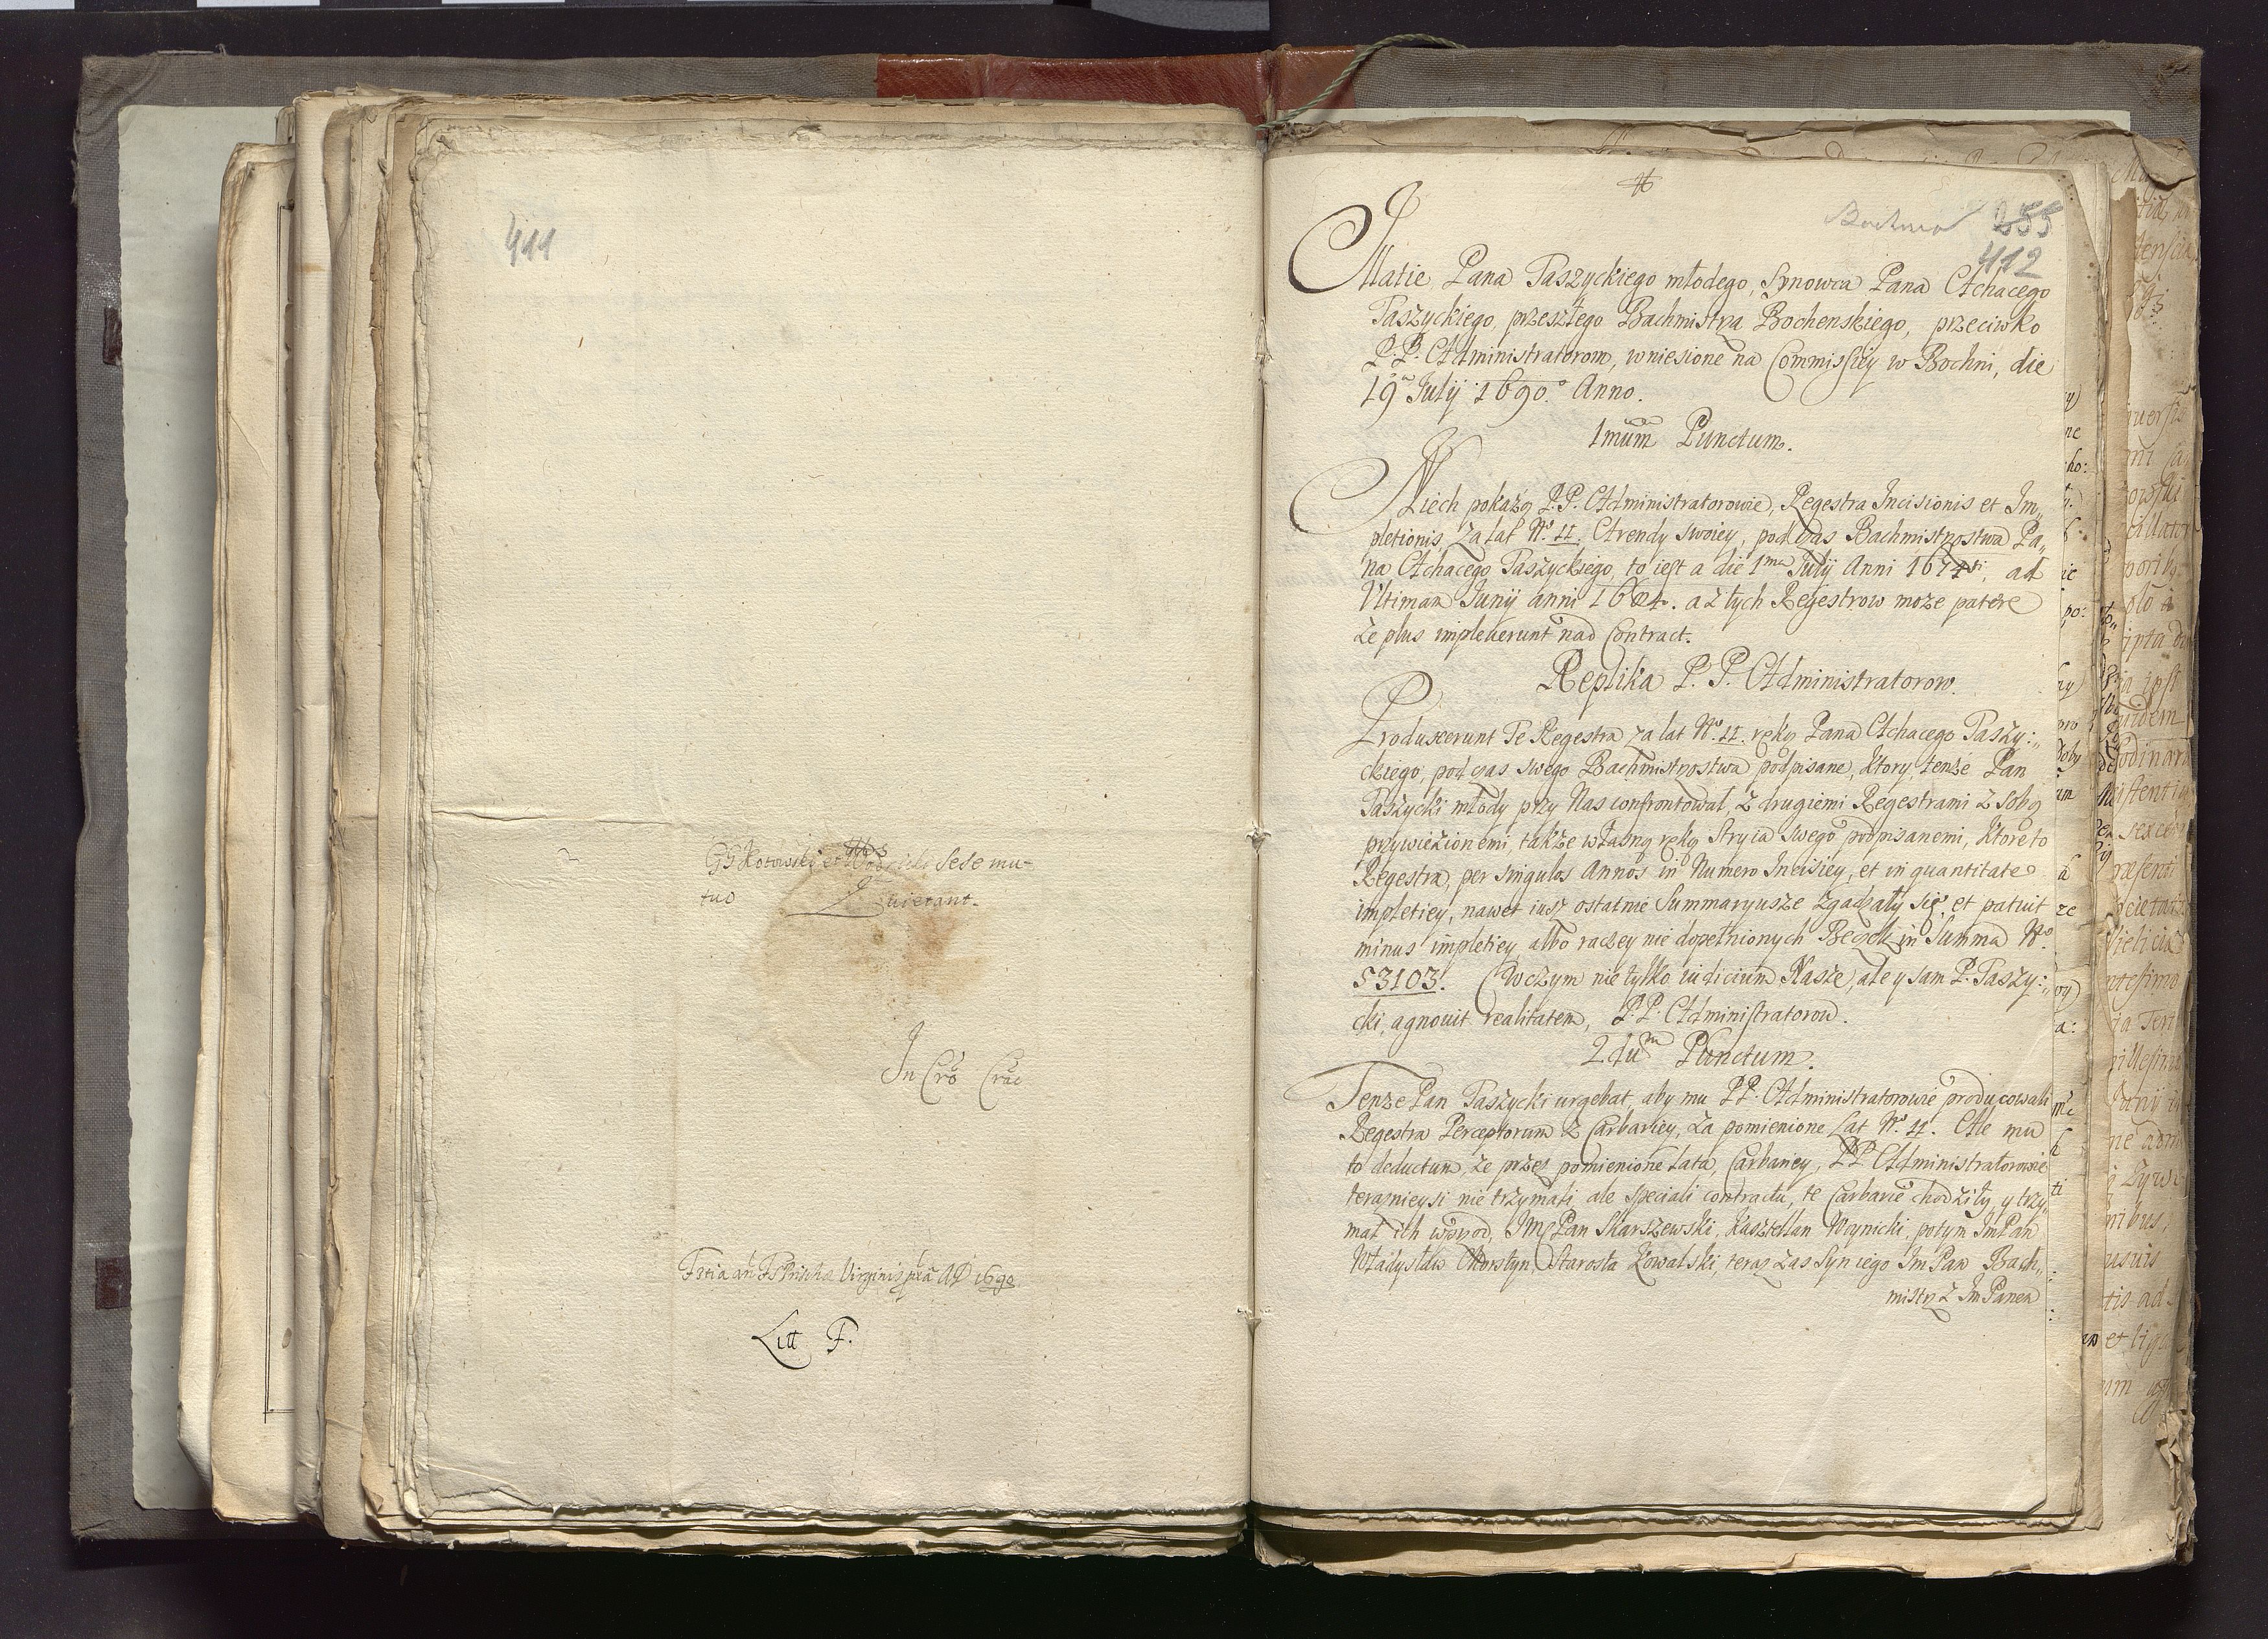 411
GG Kotowski et sese mu-
tuo Quietant.
In Cro Crac
Fria an F Priscæ Virginis AD 1690
Litt F.
Bochnia 255
412
Illatie Pana Taszyckiego młodego, Synowca Pana Achacego
Taszyckiego, przeszłego Bachmistrza Bochenskiego, przeciwko
P.P. Administratorom, wniesione na Commissiey w Bochni, die
19a July 1690o Anno.
1mum Punctum.
Niech pokażą P.P. Administratorowie, Regestra Incisionis et Im„
pletionis, za lat No. 11. Arendy swoiey, pod czas Bachmistrzostwa Pa„
na Achacego Taszyckiego, to iest a die 1ma July Anni 1674ti, ad
Vltimam Junij anni 1684. a z tych Regestrow może patere
że plus impleuerunt nad Contract.
Replika P. P. Administratorow.
Produxerunt Te Regestra za lat No. 11. ręką Pana Achacego Taszy:„
ckiego, pod czas swego Bachmistrzostwa podpisane, Ktory, tenże Pan
Taszycki młody przy Nas confrontował, z drugiemi Regestrami z sobą
przywiezionemi, także własną ręką Stryia swego podpisanemi, Ktore to
Regestra, per singulos Annos in Numero Incisiey, et in quantitate
impletiey, nawet iusz ostatnie Summaryusze zgadzały się, et patuit
minus impletiey, albo raczey nie dopełnionych Beczek in Summa No.
53103. Wczym nie tylko iudicium Nasze, ale y sam P. Taszy:„
cki, agnouit realitatem, P.P. Administratorow.
2dum Punctum.
Tenże Pan Taszycki urgebat, aby mu P.P. Administratorowie producowali
Regestra Perceptorum z Carbariey, za pomienione Lat No. 11. Ale mu
to deductum, że przez pomienione Lata, Carbariey, P.P. Administratorowie
teraznieysi nie trzymali, ale speciali contractu, te Carbarie chodziły, y trzy„
mał ich wprzod, JMę Pan Skarszewski, Kasztellan Woynicki, potym Im Pan
Władysław Morsztyn, Starosta Kowalski, teraz zas Syn iego Im Pan Bach„
mistrz z Im Panem